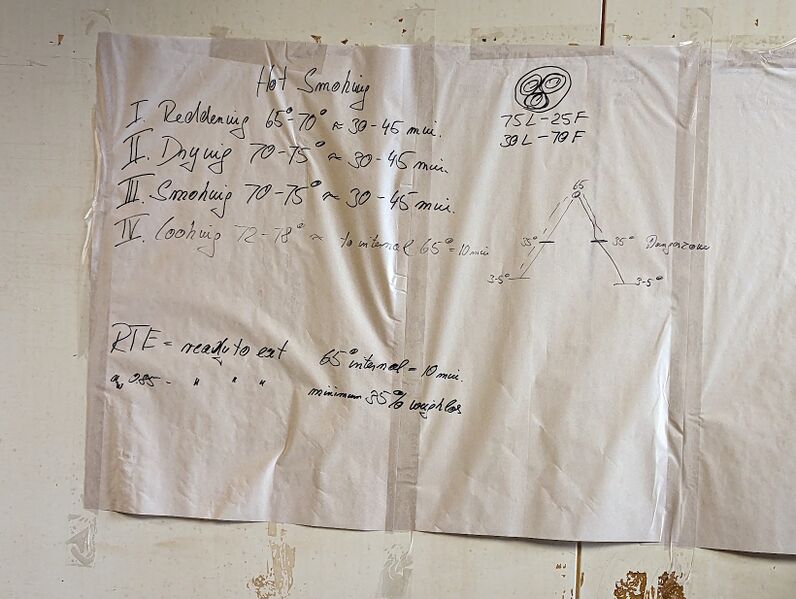 Hot Smoking
I. Reddening 65°-70° ≈ 30-45 min.
II. Drying 70-75° ≈ 30-45 min.
III. Smoking 70-75° ≈ 30-45 min.
IV. Cooking 72-78° ≈ to internal 65° = 10 min
RTE = ready to eat 65° internal = 10 min.
aw 0.85 - " " " minimum 35% weighlos
75L-25F
30L-70F
65
35° 35° Dangerzone
3-5° 3-5°